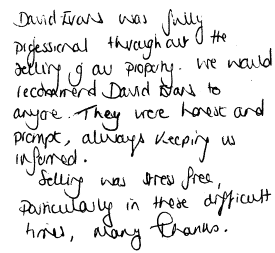 David Evans was fully
professional throughout the
selling of our property. We would
recommend David Evans to
anyone. They were honest and
prompt, always keeping us
informed.
Selling was stress free,
particularly in these difficult
times, many thanks.